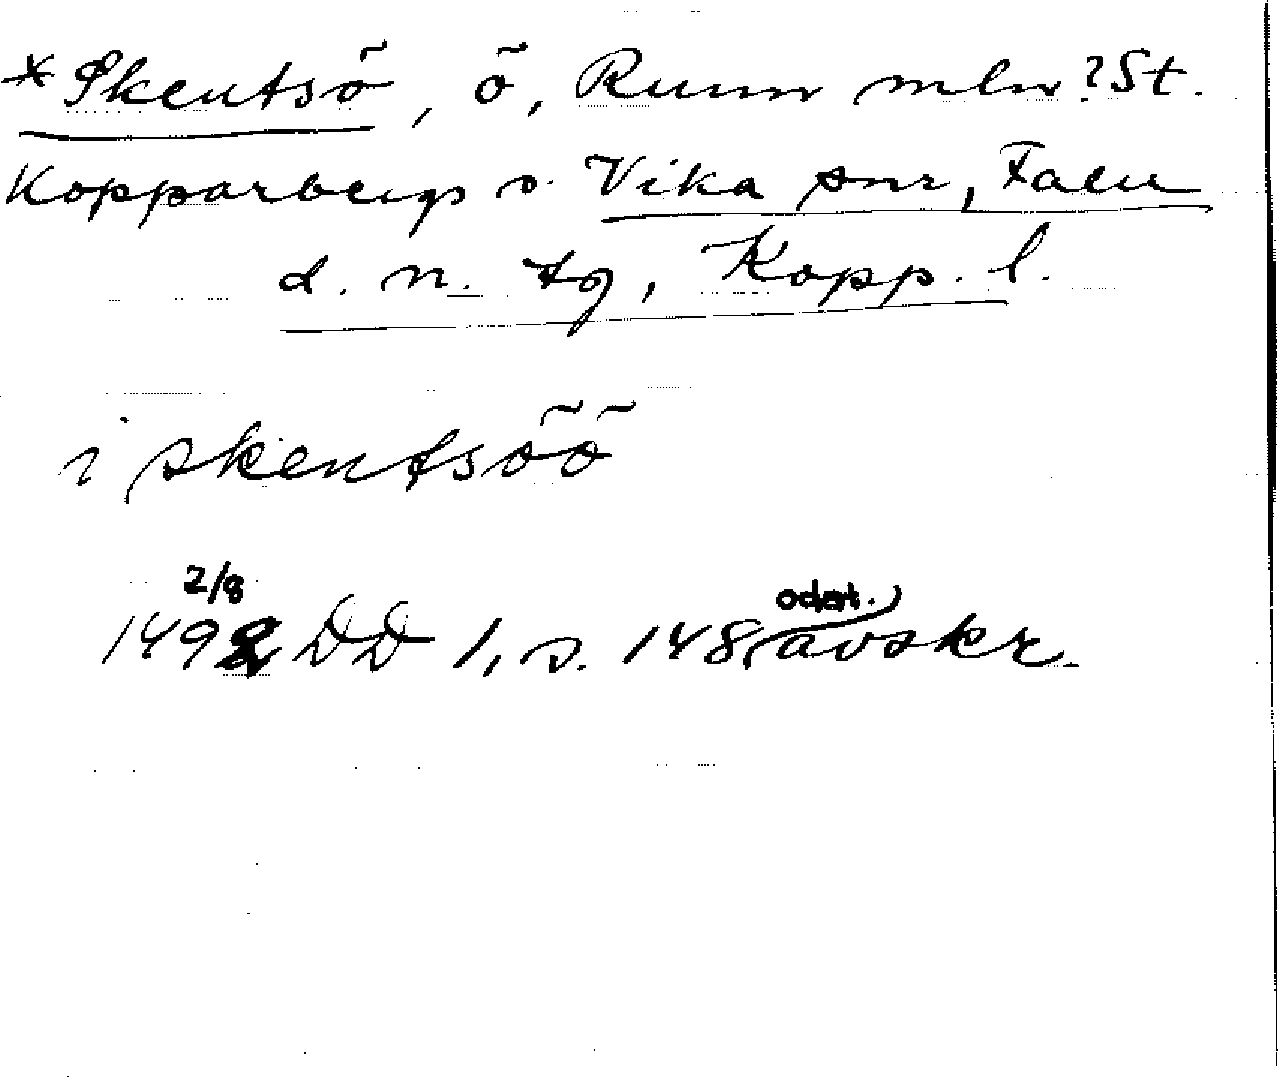 *Skentsö, ö, Runn mln ? St.
Kopparbergs o. Vika snr, Falu
d. n. tg, Kopp. l.
i skentsöö
2/8 odat.
1492 DD 1, s. 148, avskr.